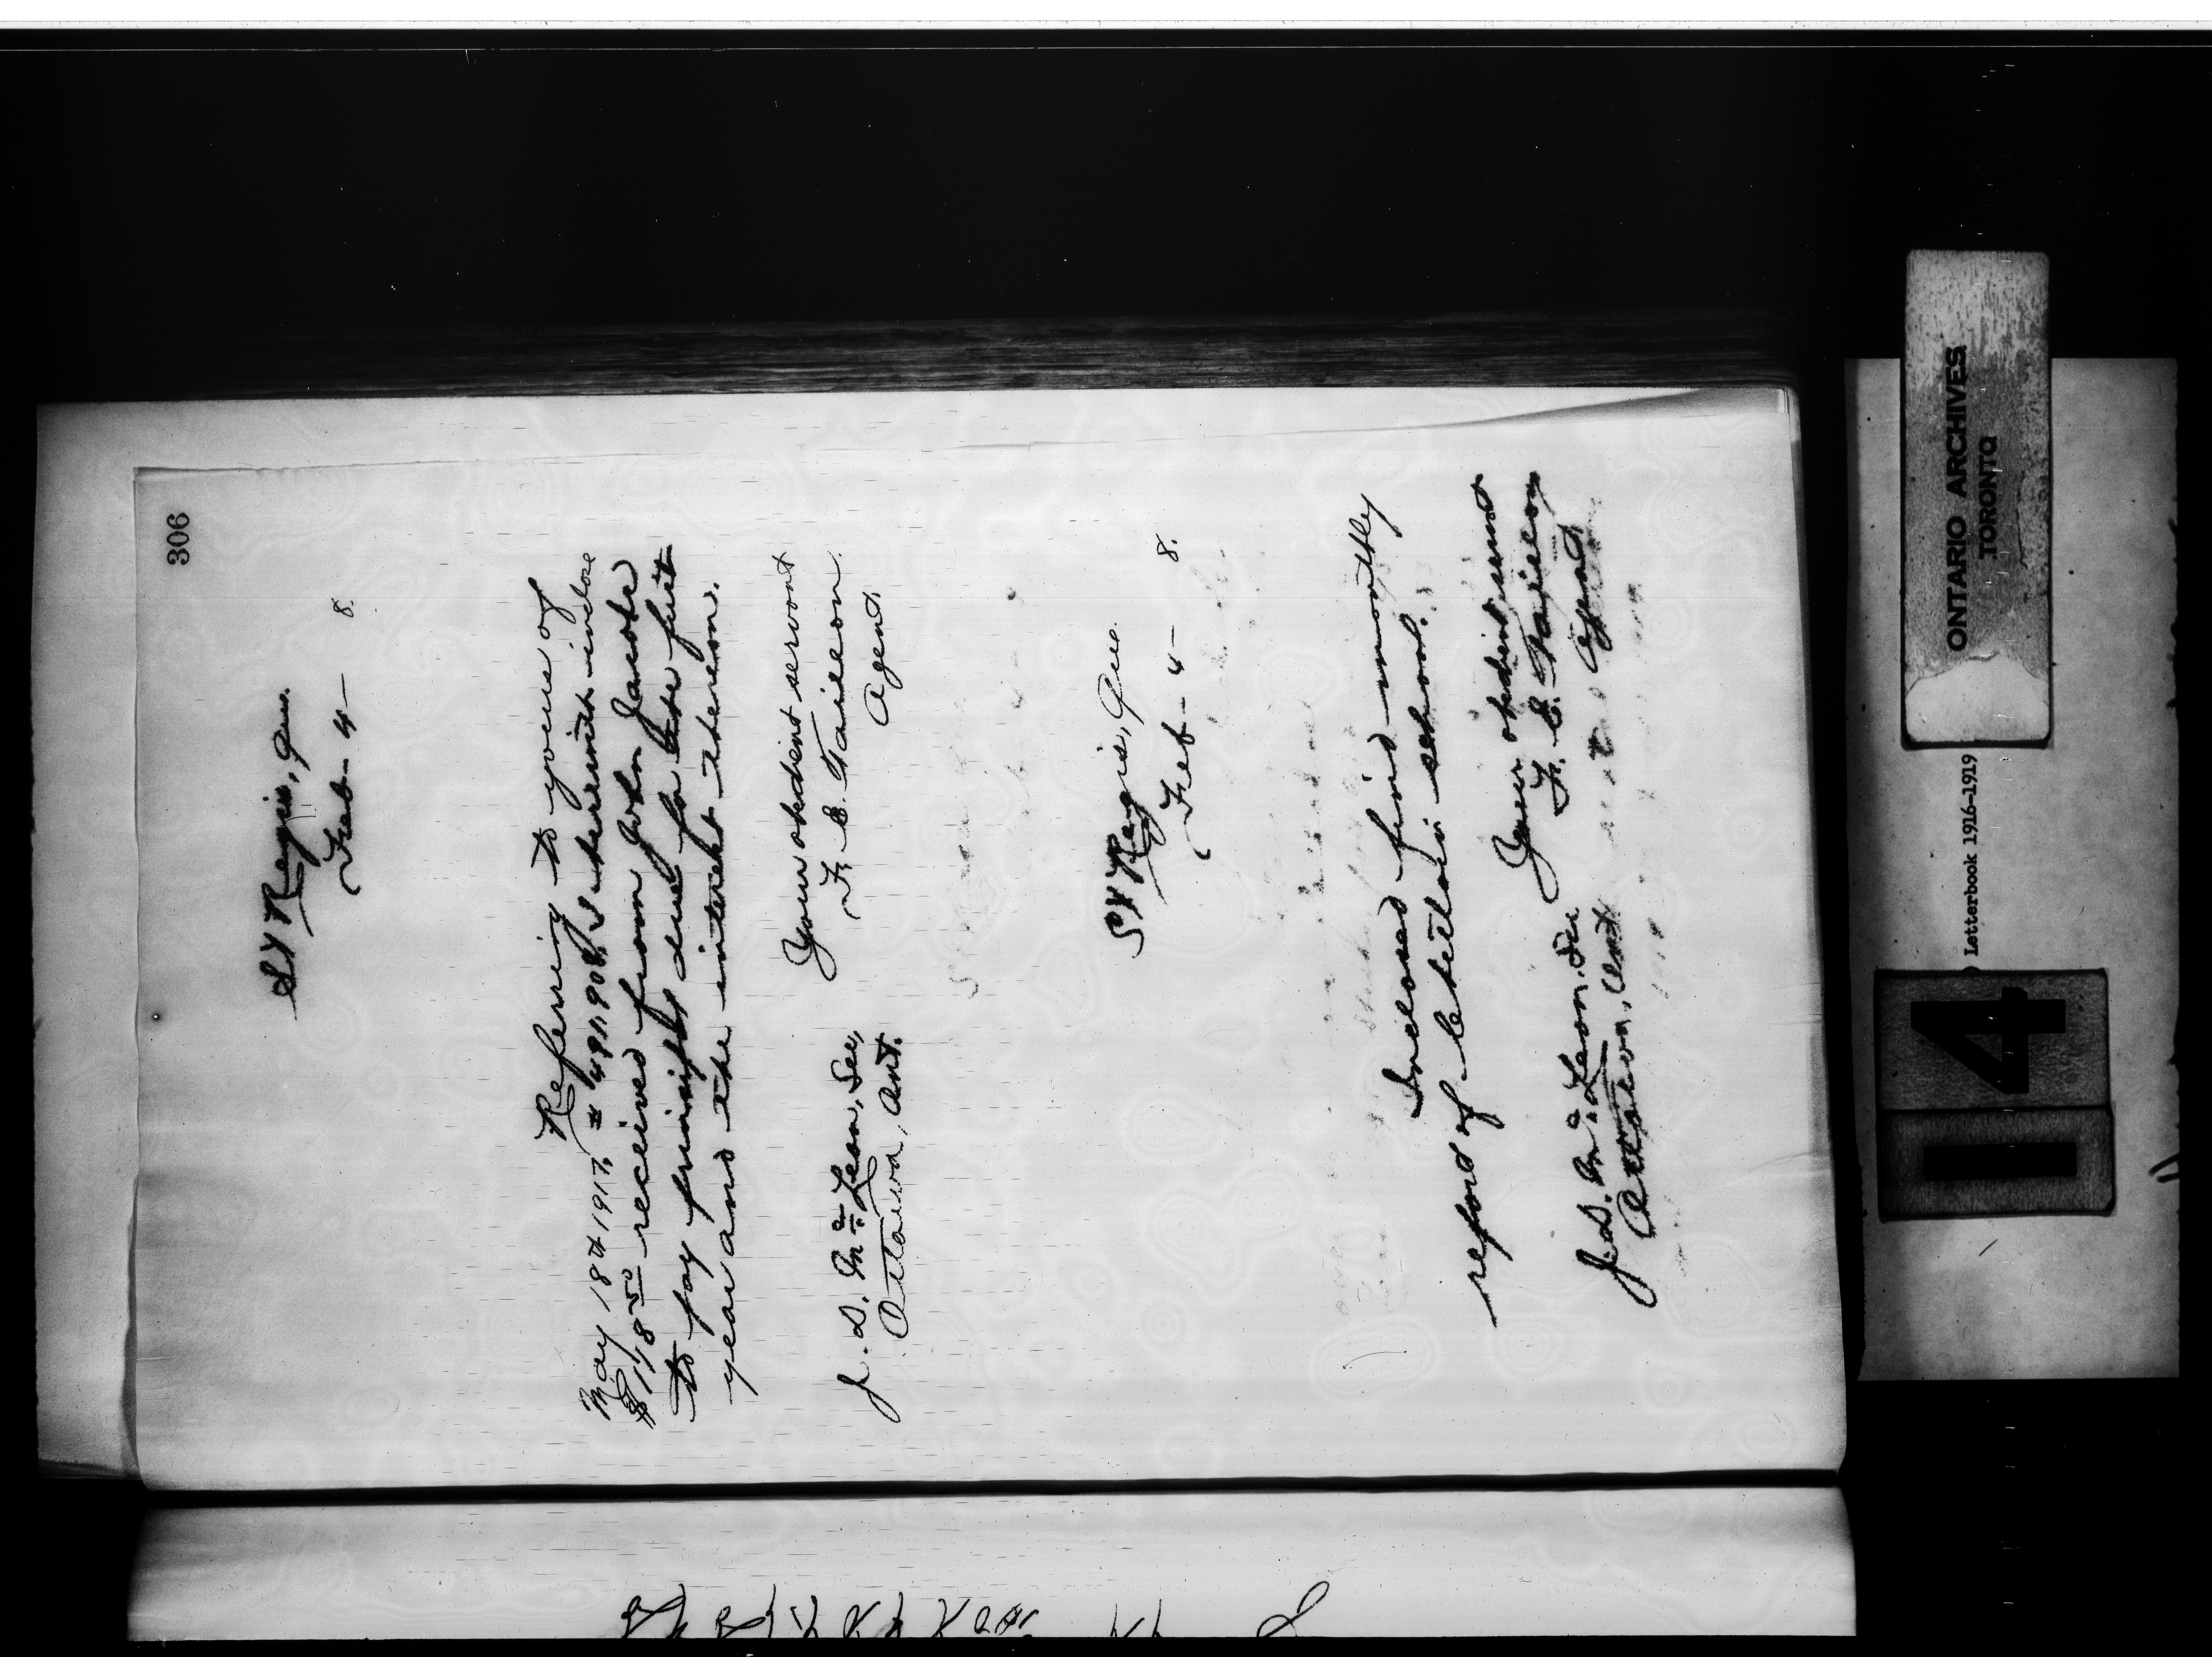 306
St Regis, Que.
Feb - 4 - 8.
Referring to yours of
May 18th 1917, # 491,908, I herewith inclose
$118 50 received from John Jacobs
to pay principal due for the first
year and the interest thereon.
Your obedient servant
F. E. Taillon
Agent.
J. D. McLean, Sec,
Ottawa, Ont.
St Regis, Que.
Feb - 4 - 8.
Inclosed find monthly
report of school.
Your obedient servant
F. E. Taillon
Agent
J. D. McLean, Sec
Ottawa, Ont
ONTARIO ARCHIVES
TORONTO
Letterbook 1916-1919
14